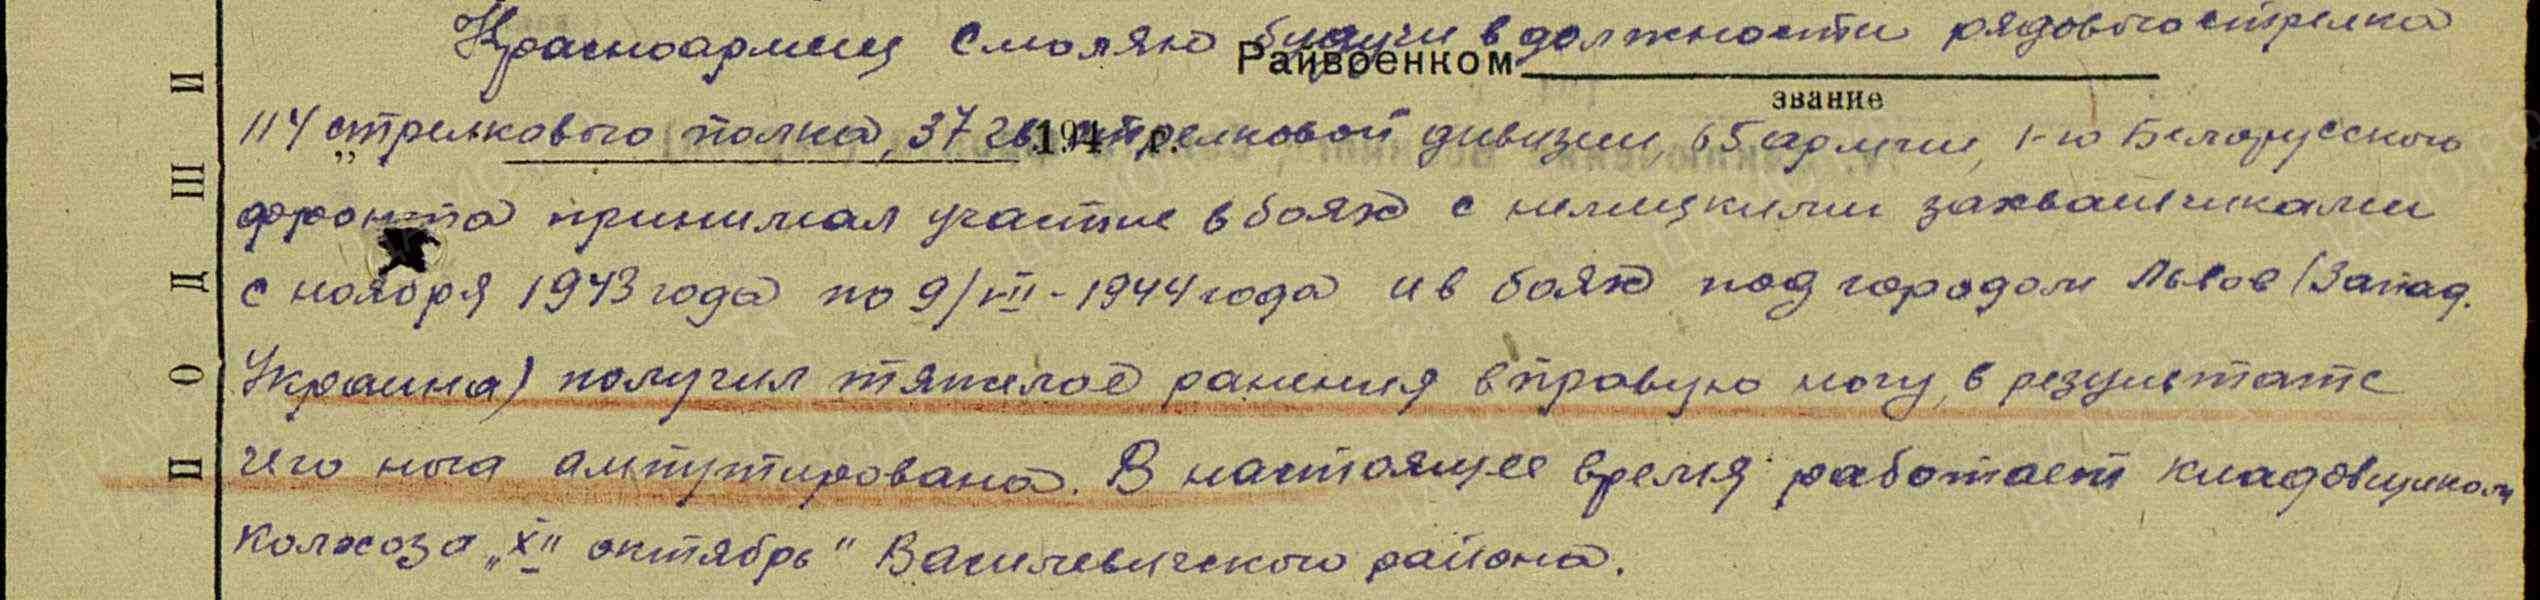 Красноармеец Смоляк будучи в должности рядового стрелка
Райвоенком
звание
114 стрелкового полка, 37 гв. стрелковой дивизии, 65 армии, 1-го Белорусского
" 194 г.
фронта принимал участие в боях с немецкими захватчиками
с ноября 1943 года по 9/VII-1944 года и в боях под городом Львов (Запад.
Украина) получил тяжелое ранения в правую ногу, в результате
чего нога ампутирована. В настоящее время работает кладовщиком
колхоза „XII октябрь" Василевичского района.
ПОДШИ